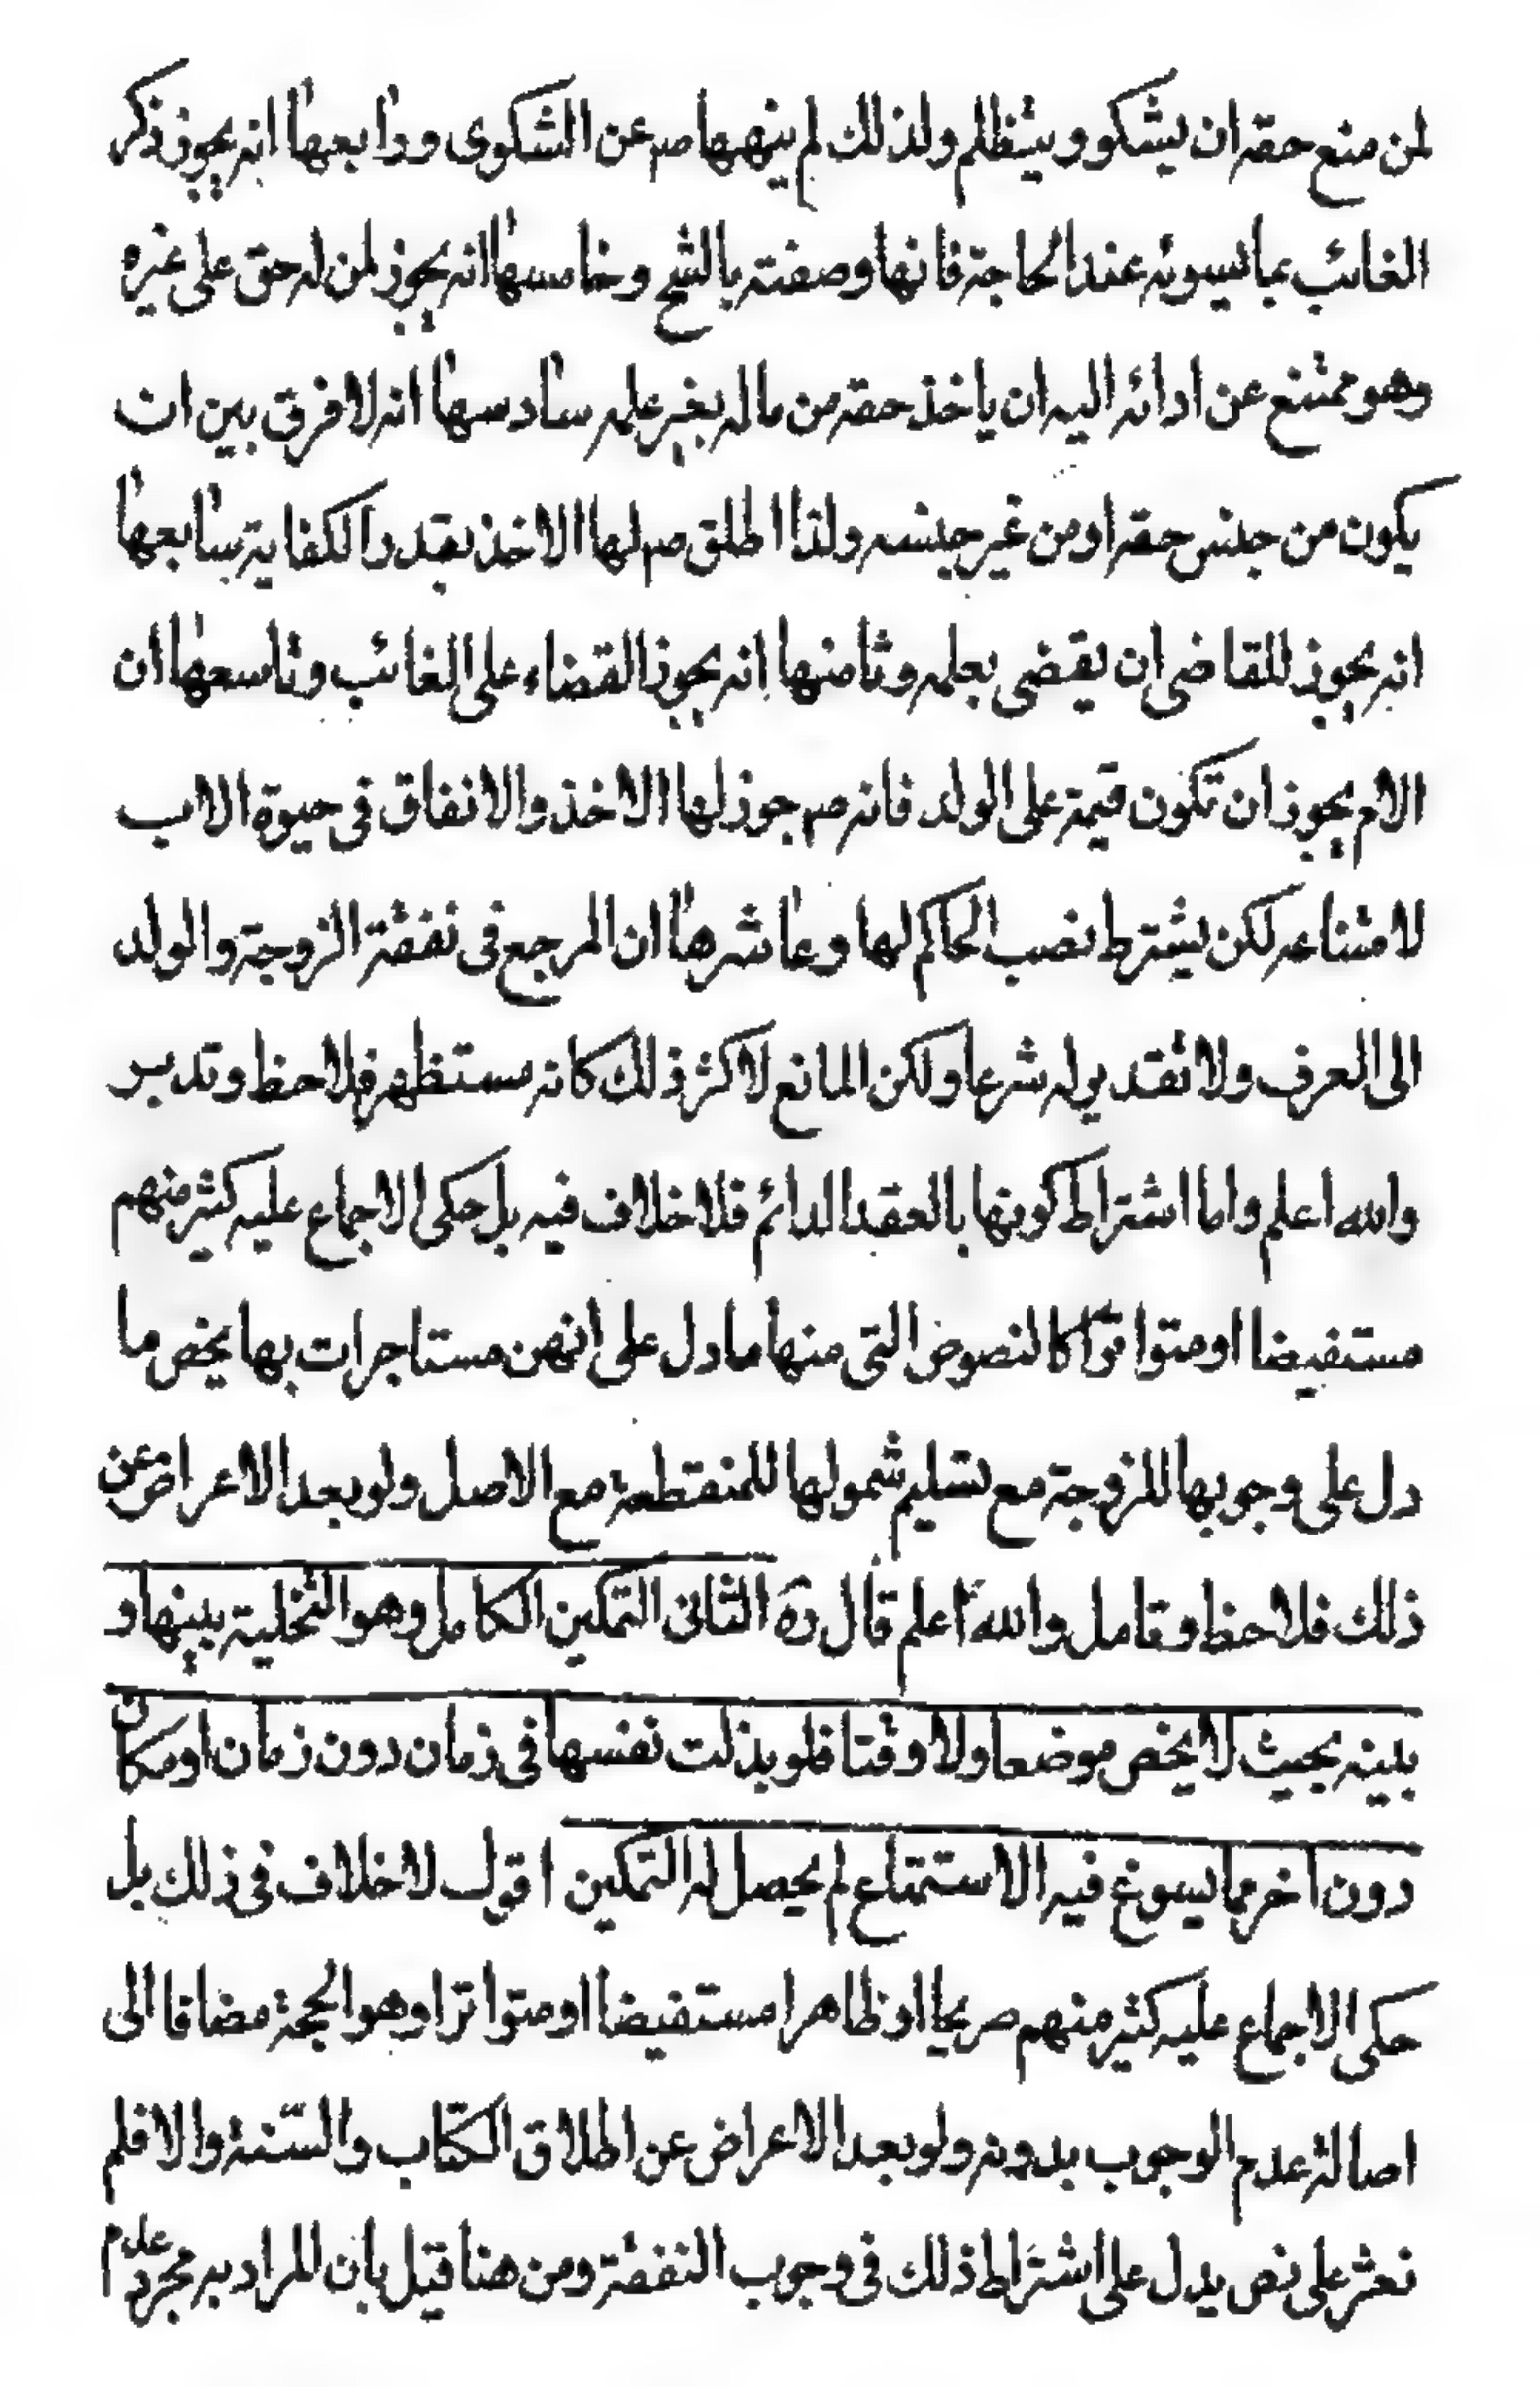 لمن منع حقه ان يشكو ويتظلم ولذلك لم ينهها صم عن الشكوى ورابعها انه يجوز ذكر
الغائب بما يسوئه عند الحاجة فانها وصفته بالشح وخامسها انه يجوز لمن له حق على غيره
وهو ممتنع عن ادائه اليه ان ياخذ حقه من ماله بغير علمه سادسها انه لا فرق بين ان
يكون من جنس حقه او من غير جنسه ولذا اطلق صم لها الاخذ بقدر الكفاية سابعها
انه يجوز للقاضى ان يقضى بعلمه وثامنها انه يجوز القضاء على الغائب وتاسعها ان
الام يجوز ان تكون قيمة على الولد فانه صم جوز لها الاخذ والانفاق فى حيوة الاب
لامتناعه لكن يشترط نصب الحاكم لها وعاشرها ان المرجع فى نفقة الزوجة والولد
الى العرف ولا تقدير له شرعا ولكن المانع لاكثر ذلك كانه مستظهر فلاحظ وتدبر
والله اعلم واما اشتراط كونها بالعقد الدائم فلا خلاف فيه بل حكى الاجماع عليه كثير منهم
مستفيضا او متواترا كالنصوص التى منها ما دل على انهن مستاجرات بها يخص ما
دل على وجوبها للزوجة مع تسليم شمولها للمنقطعة مع الاصل ولو بعد الاعراض عن
ذلك فلاحظ وتامل والله اعلم قال ره الثانى التمكين الكامل وهو التخلية بينها و
بينه بحيث لا يخص موضعا ولا وقتا فلو بذلت نفسها فى زمان دون زمان او مكان
دون اخر مما يسوغ فيه الاستمتاع لم يحصل له التمكين اقول لا خلاف فى ذلك بل
حكى الاجماع عليه كثير منهم صريحا او ظاهرا مستفيضا او متواترا وهو الحجة مضافا الى
اصالة عدم الوجوب بدونه ولو بعد الاعراض عن اطلاق الكتاب والسنة والا فلم
نعثر على نص يدل على اشتراط ذلك فى وجوب النفقة ومن هنا قيل بان المراد به مجرد عدم